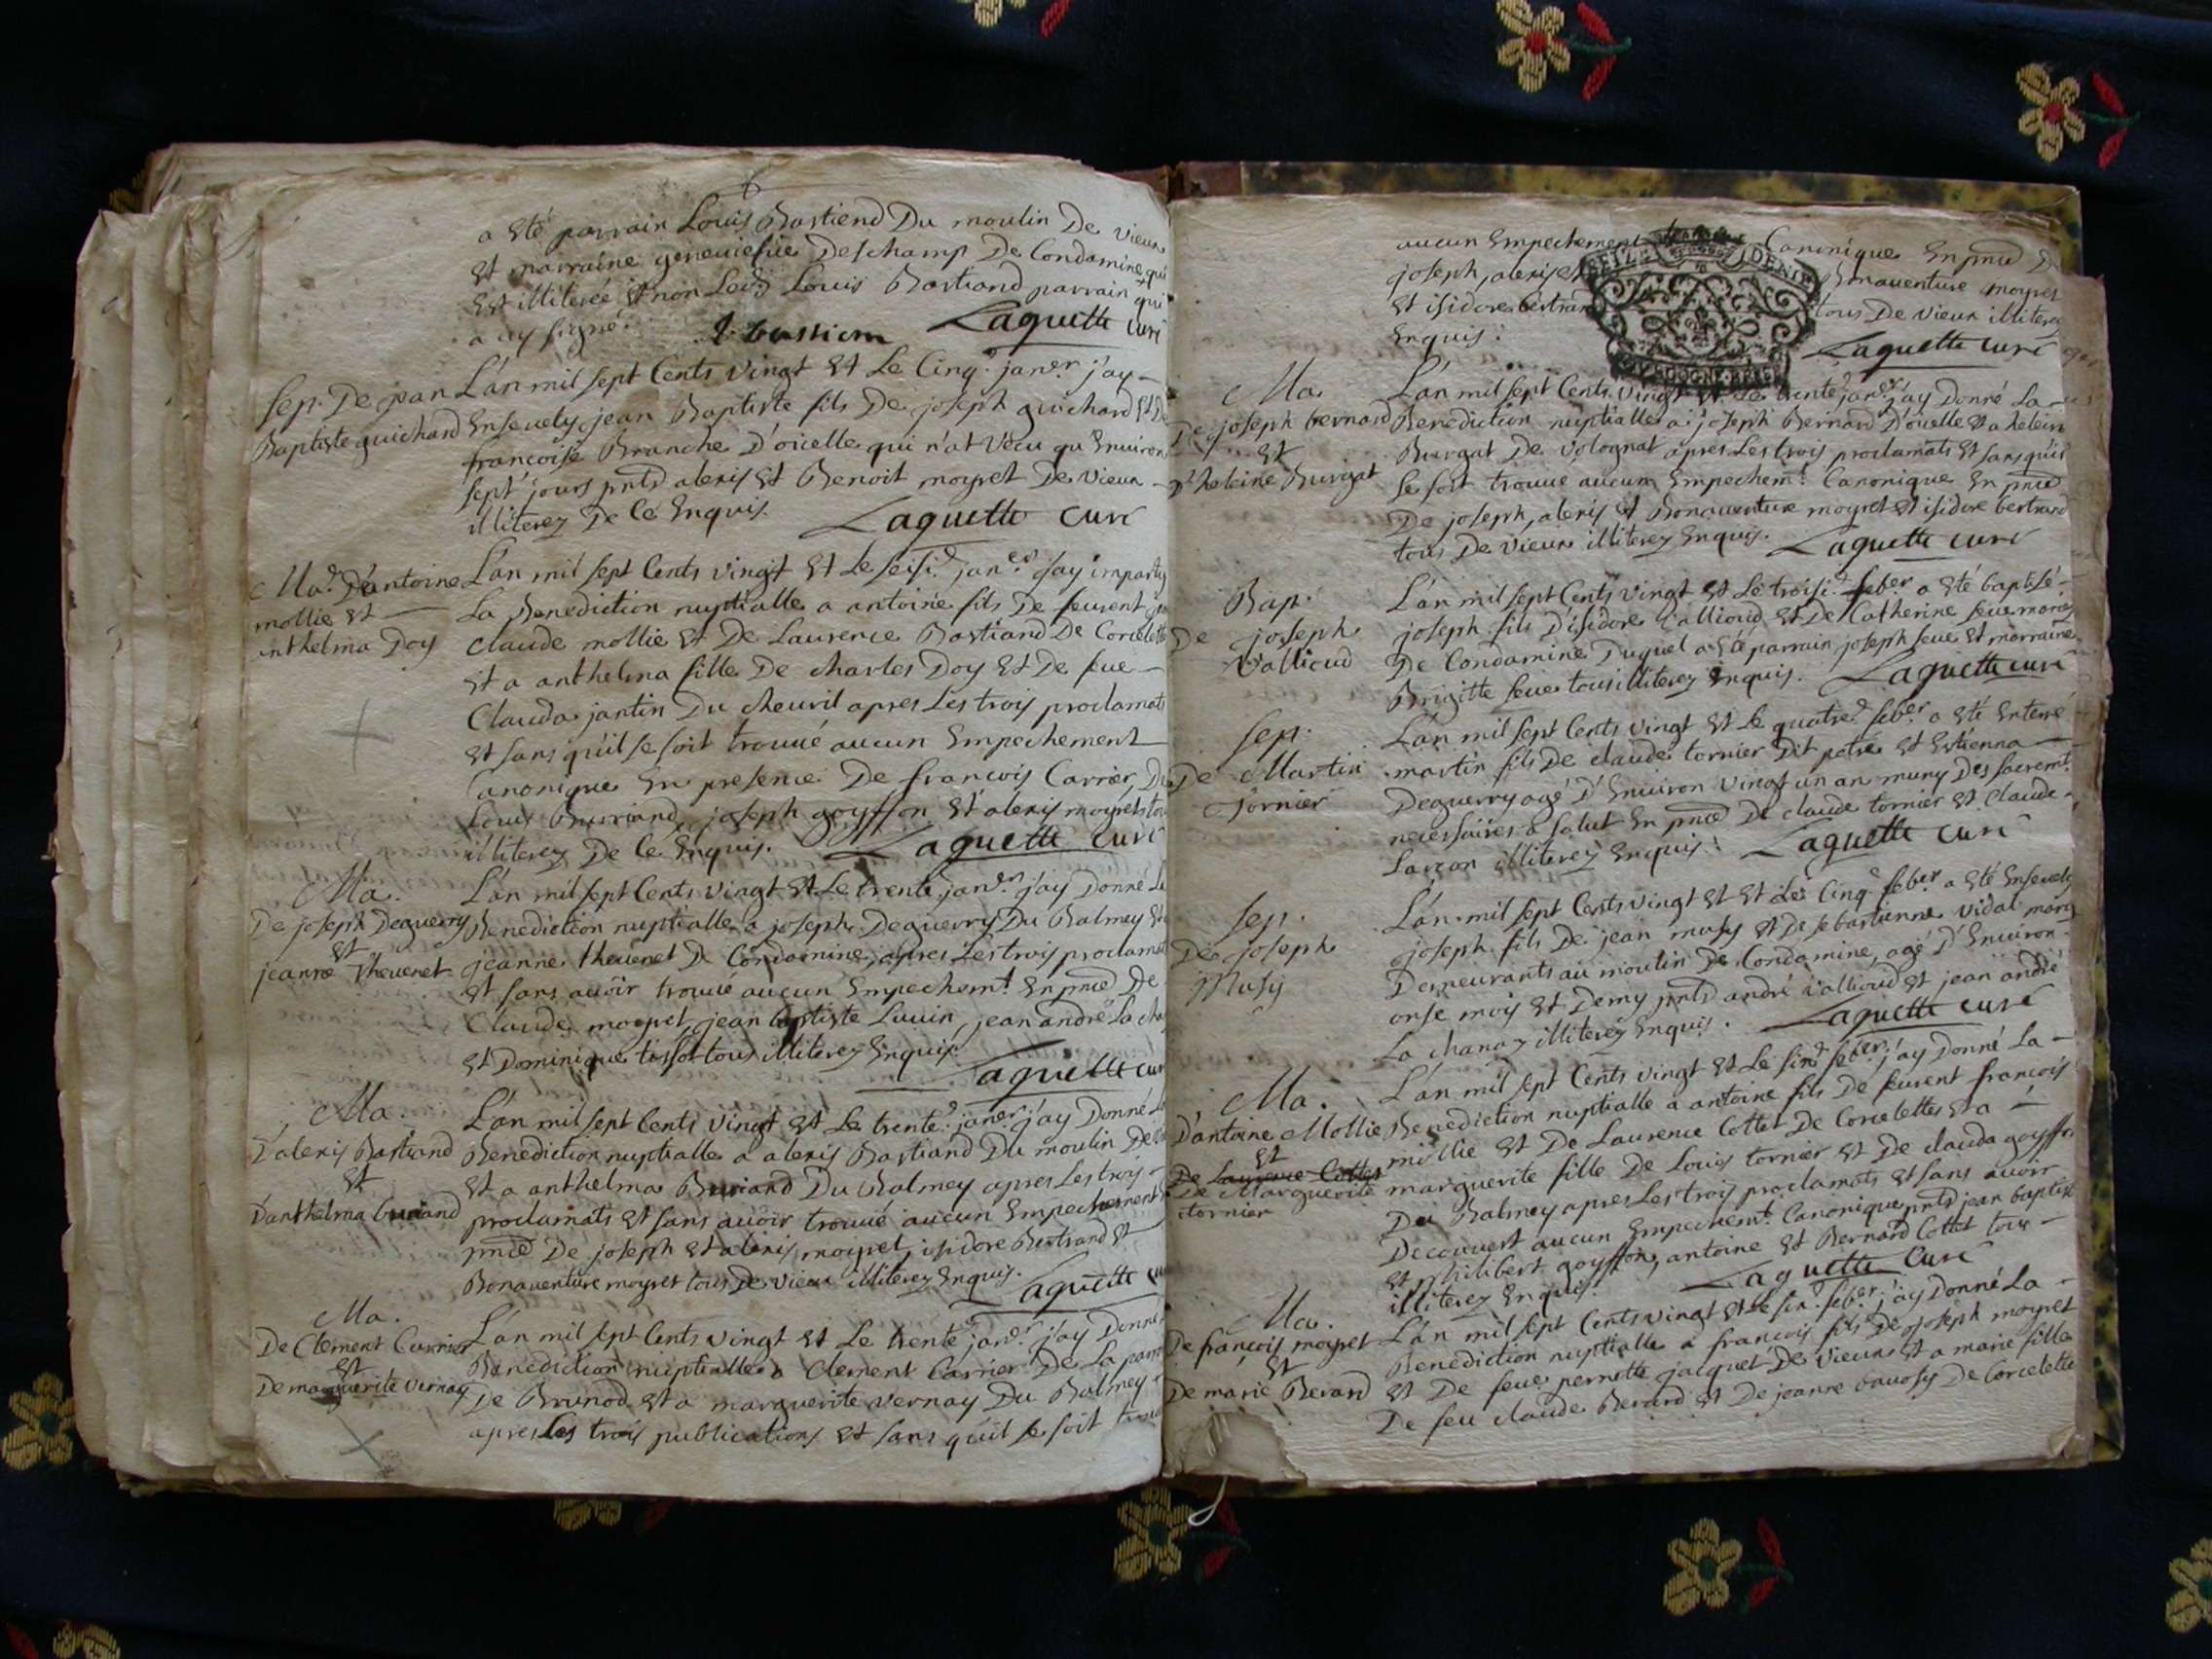 6
a Eté parrain Louis Bastiend Du moulin De vieux
Et marraine geneviefve Deschamp De Condamine qui
Est illiterée Et non Led. Louis Bastiand parrain qui
a icy signé.
l. bastiem Laguette curé
Sep. De jean
Baptiste guichard
L'an mil sept Cents vingt Et Le Cinq. janer. j'ay
Ensevely jean Baptiste fils De joseph guichard Et De
francoise Branche D'oicelle qui n'at vecu qu'Environ
sept jours pnts alexis Et Benoit moyret De vieux
illiterez De Ce Enquis. Laguette curé
Ma. D'antoine
mollie Et
anthelma Doy
L'an mil sept Cents vingt Et Le seisi. janer. j'ay imparty
La Benediction nuptialle a antoine fils De feurent
Claude mollie Et De Laurence Bastiand De Corcelette
Et a anthelma fille De charles Doy Et De fue
Clauda jantin Du cheuril apres Les trois proclamats
Et sans qu'il se soit trouué aucun Empechement
Canonique En presence De francois Carrier, Du
Louis Burriand, joseph goyffon Et alexis moyret tous
illiterez De Ce Enquis. Laguette curé
Ma.
De joseph Deguerry
Et
jeanne Thevenet
L'an mil sept Cents vingt Et Le trente janer. j'ay Donné La
Benediction nuptialle a joseph Deguerry Du Balmey Et a
jeanne thevenet De Condamine, apres Les trois proclamats
Et sans auoir trouué aucun Empechemt. En pnce De
Claude moyret, jean baptiste Lauin, jean andré La cha
Et Dominique tissot tous illiterez Enquis.
Laguette curé
Ma.
D'alexis Bastiand
Et
D'anthelma buriand
L'an mil sept Cents vingt Et Le trente. janer. j'ay Donné La
Benediction nuptialle a alexis Bastiand Du moulin De
Et a anthelma Buriand Du Balmey apres Les trois
proclamats Et sans auoir trouué aucun Empechement
pnce De joseph Et alexis moyret, isidore Bertrand Et
Bonauenture moyret tous De vieux illiterez Enquis.
Laguette curé
Ma.
De Clement Carrier
Et
De marguerite Vernay
L'an mil sept Cents vingt Et Le trente janer. j'ay Donné
Benediction nuptialle a Clement Carrier De La parr
De Brunod Et a marguerite vernay Du Balmey
apres Les trois publications Et sans qu'il se soit trouué
aucun Empechement Canonique En pnce De
joseph, alexis Et Bonauenture moyret
Et isidore bertrand tous De vieux illiterez
Enquis. Laguette curé
SEIZE DENIE
BOURGOGNE BRESSE
Ma.
De joseph bernard
Et
D'heleine Burgat
L'an mil sept Cents vingt Et Le trente janer. j'ay Donné La
Benediction nuptialle a joseph Bernard D'oicelle Et a helein
Burgat De volognat apres Les trois proclamats Et sans qu'il
se soit trouué aucun Empechemt. Canonique En pnce
De joseph, alexis Et Bonauenture moyret Et isidore bertrand
tous De vieux illiterez Enquis. Laguette curé
Bap.
De joseph
Vallioud
L'an mil sept Cents vingt Et Le troisi. feber. a Eté baptisé
joseph fils D'isidore Vallioud Et De Catherine seue mariez
De Condamine Duquel a Eté parrain joseph seue Et marraine
Brigitte seue tous illiterez Enquis. Laguette curé
Sep.
De Martin
Tornier
L'an mil sept Cents vingt Et Le quatre. feber. a Eté Enterré
martin fils De claude tornier Dit patre Et Estienna
Deguerry agé D'Enuiron vingt un an muny Des sacremt.
necessaires a salut En pnce De claude tornier Et Claude
Larçon illiterez Enquis. Laguette curé
Sep.
De joseph
Musy
L'an mil sept Cents vingt Et Et Le Cinq. feber. a Eté Ensevely
joseph fils De jean musy Et De sebastienne vidal mariez
Demeurants au moulin De Condamine, agé D'Enuiron
onse mois Et Demy pnts andré Vallioud Et jean andré
La chanaz illiterez Enquis. Laguette curé
Ma.
D'antoine Mollie
Et
De Laurence Collet
De Marguerite
tornier
L'an mil sept Cents vingt Et Le six. feber. j'ay Donné La
Benediction nuptialle a antoine fils De feurent francois
mollie Et De Laurence Collet De Corcelettes Et a
marguerite fille De Louis tornier Et De clauda goyffon
Du Balmey apres Les trois proclamats Et sans auoir
Decouuert aucun Empechemt. Canonique pnts jean baptiste
Et philibert goyffon, antoine Et Bernard Collet tous
illiterez Enquis. Laguette Curé
Ma.
De francois moyret
Et
De marie Berard
L'an mil sept Cents vingt Et Le six. feber. j'ay Donné La
Benediction nuptialle a francois fils De joseph moyret
Et De feue pernette jacquet De vieux Et a marie fille
De feu claude Berard Et De jeanne bauosy De Corcelette